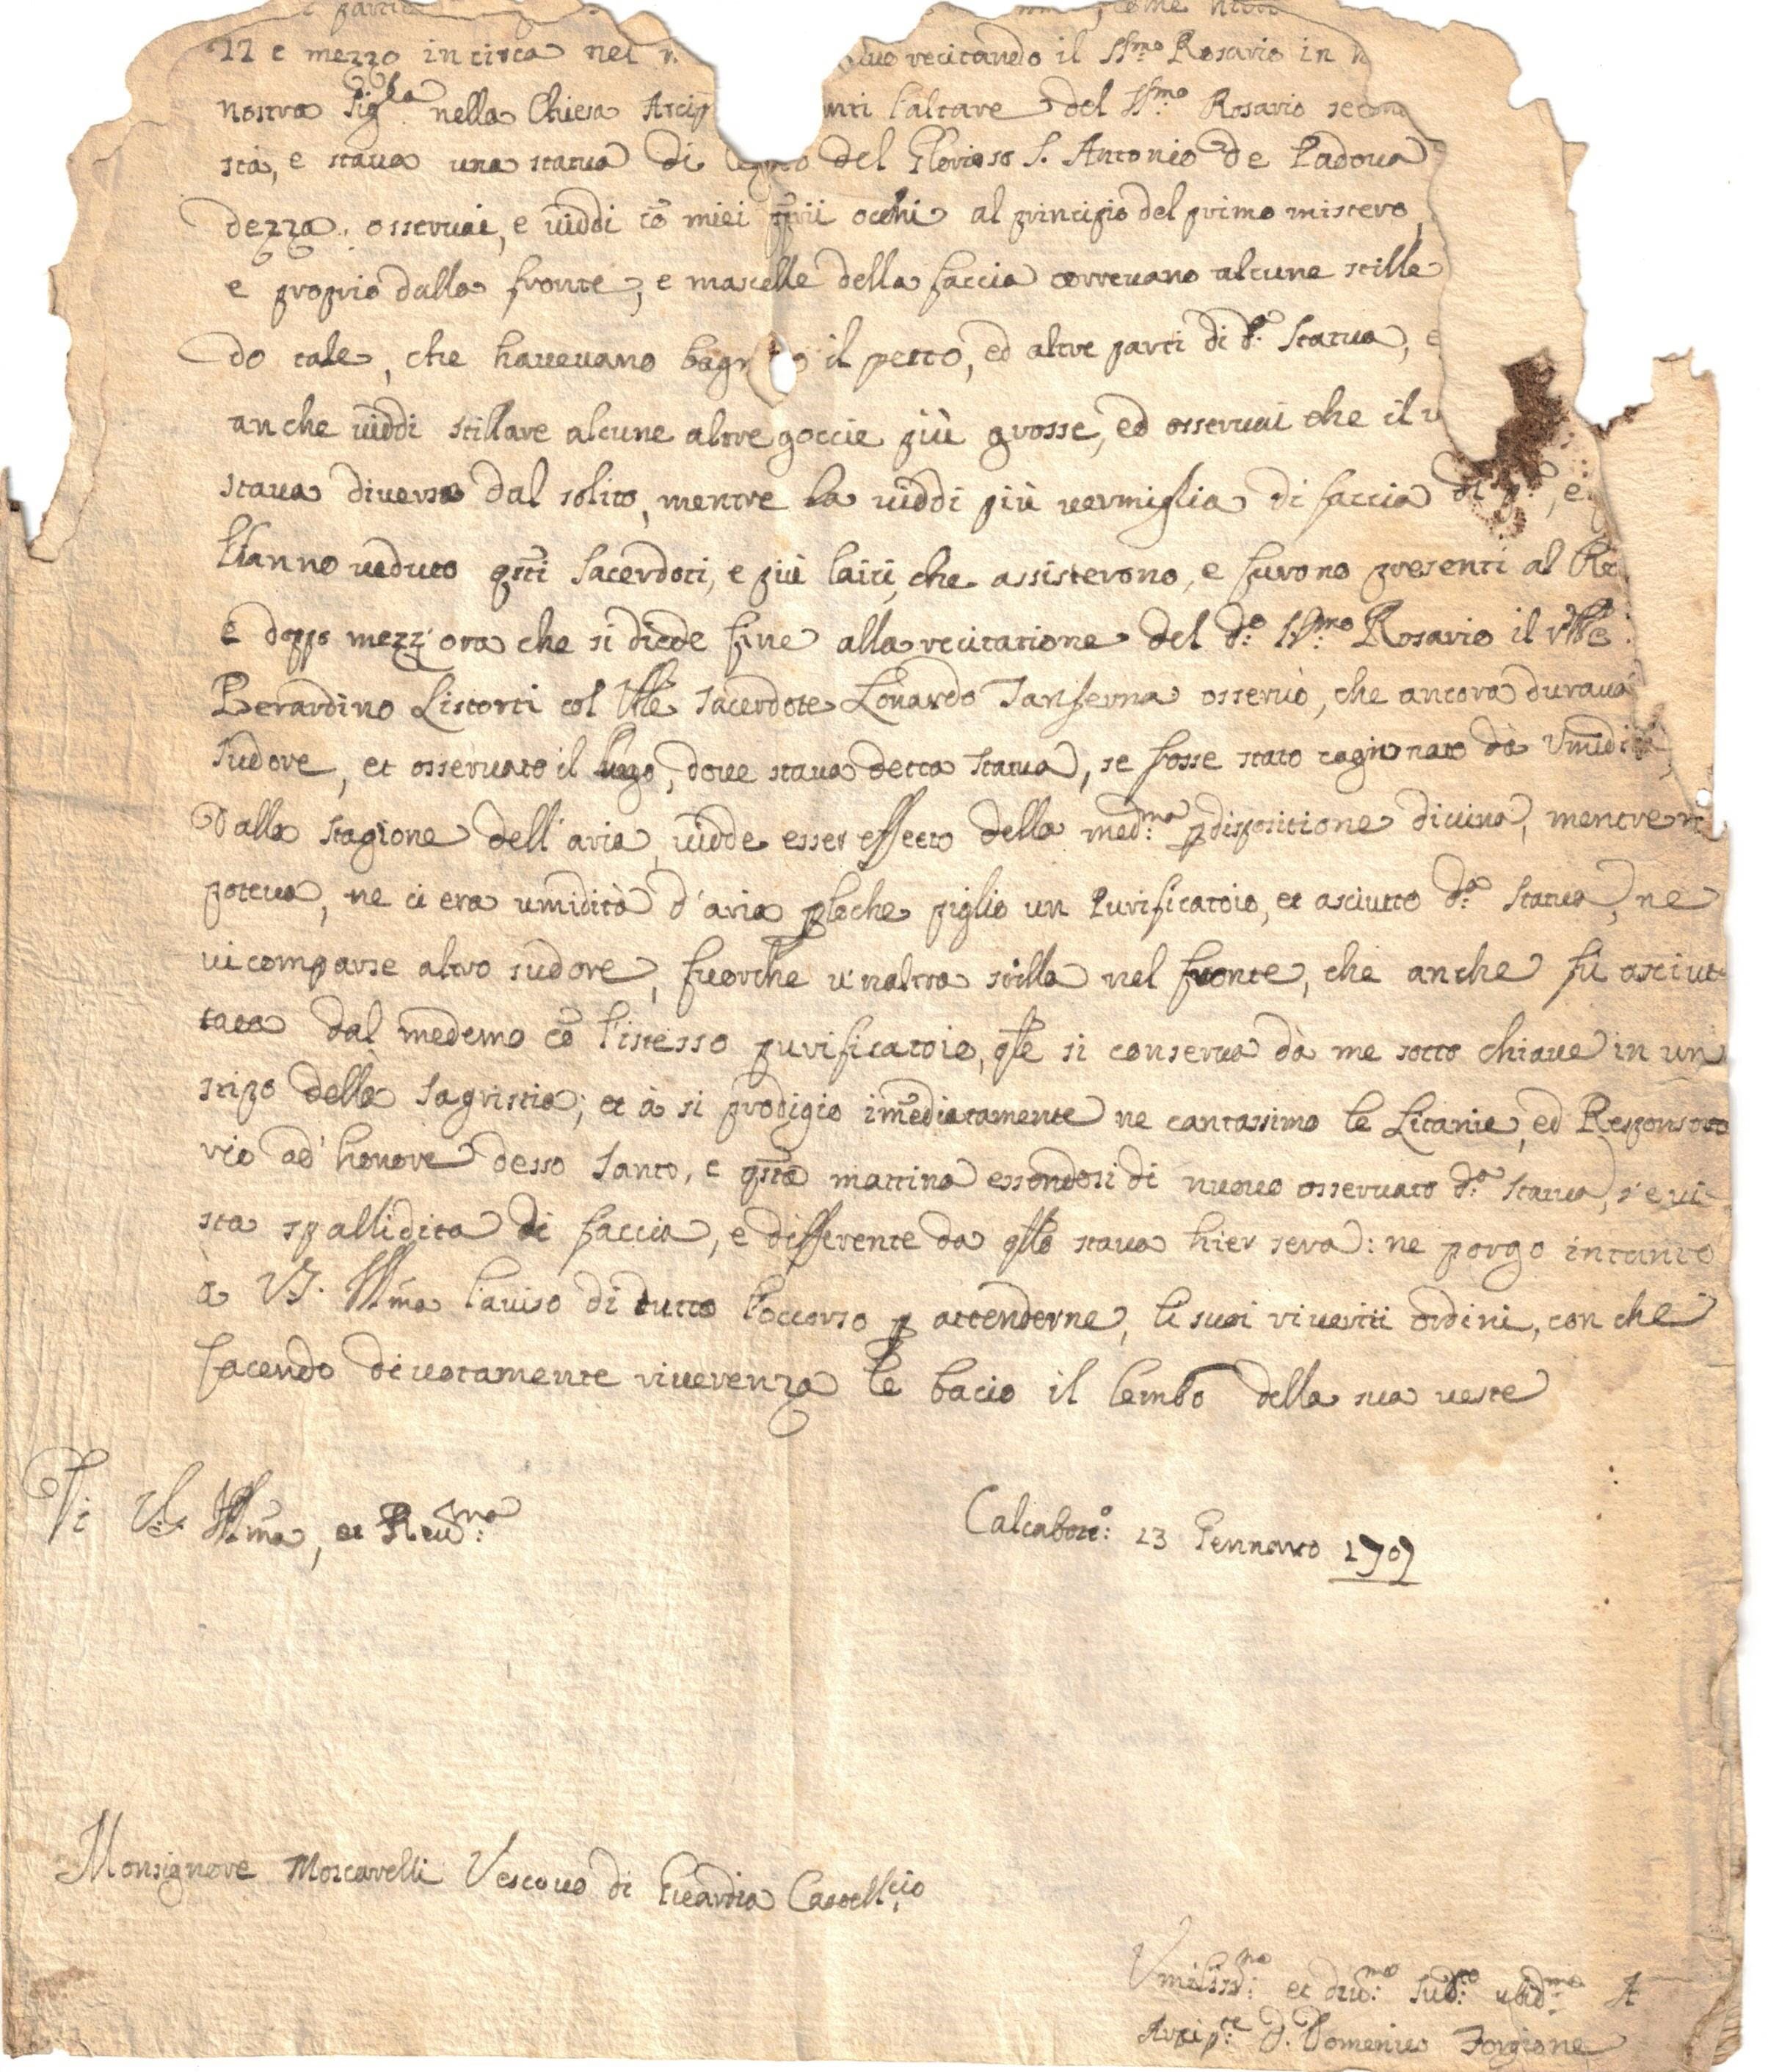 e partic come
22 e mezzo in circa nel recitando il SS.mo Rosario in
nostra nella Chiesa Arcip nti l'altare del SS.mo Rosario secon
stà, e staua una statua di del Glorioso S. Antonio de Padoua
dezza. osseruai, e uiddi cō miei pp̄rii occhi al principio del primo mistero,
e proprio dalla fronte, e mascelle della faccia correuano alcune stille
do tale, che haueuano bagn o il petto, ed altre parti di d.a Statua, e
anche uiddi stillare alcune altre goccie più grosse, ed osseruai che il u
staua diuersa dal solito, mentre la uiddi più uermiglia di faccia di p.a, e
l'hanno ueduto q̄sti Sacerdoti, e più laici, che assisterono, e furono presenti al
e doppo mezz'ora che si diede fine alla recitatione del d.o SS.mo Rosario il
Berardino Listorti col Sacerdote Lonardo Tanserna osseruò, che ancora duraua
sudore, et osseruato il luogo, doue staua detta Statua, se fosse stato cagionato dà Vmidità,
ò alla stagione dell'aria, uidde esser effetto della med.ma p̱dispositione diuina, mentre n
poteua, ne ci era umidità d'aria p̱loche piglio un Purificatoio, et asciutto d.a Statua, ne
ui comparse altro sudore, fuorche u'naltra stilla nel fronte, che anche fù asciut-
tata dal medemo cō l'istesso purificatoio, q̄le si conserua dà me sotto chiaue in un
stipo della Sagristia; et à si prodigio im̄ediatamente ne cantassimo le Litanie, ed Responso
rio ad honore desso Santo, e q̄sta mattina essendosi di nuouo osseruato d.a Statua, s'è ui-
sta spallidita di faccia, e differente da q̄llo staua hier sera: ne porgo intanto
à VS. Ill̄ma l'auiso di tutto l'occorso p̱ attenderne, li suoi riueriti ordini, con che
facendo diuotamente riuerenza le bacio il lembo della sua ueste
Di V.S. Ill̄ma, et Reu.ma
Calcabott.o: 13 Gennaro 1707
Monsignore Moscarelli Vescouo di Guardia Castell
Vmiliss.mo et diu.mo
Arcip.te D. Domenico Forgione